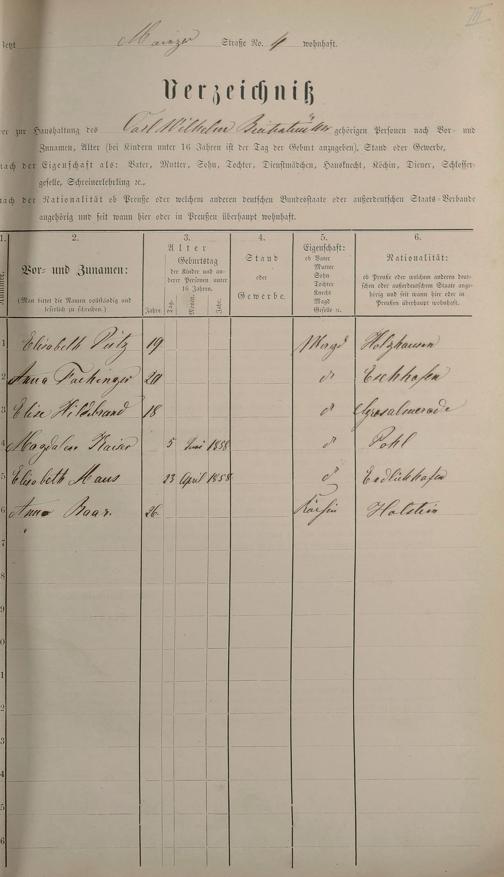 III
Jetzt Mainzer Straße No. 4 wohnhaft.
Verzeichniß
der zur Haushaltung des Carl Wilhelm gehörigen Personen nach Vor- und
Zunamen, Alter (bei Kindern unter 16 Jahren ist der Tag der Geburt anzugeben), Stand oder Gewerbe,
nach der Eigenschaft als: Vater, Mutter, Sohn, Tochter, Dienstmädchen, Hausknecht, Köchin, Diener, Schlosser-
geselle, Schreinerlehrling ꝛc.,
nach der Nationalität ob Preuße oder welchem anderen deutschen Bundesstaate oder außerdeutschen Staats-Verbande
angehörig und seit wann hier oder in Preußen überhaupt wohnhaft.
1. 2. 3. 4. 5. 6.
Nummer. Vor- und Zunamen: (Man bittet die Namen vollständig und leserlich zu schreiben.)
Alter Geburtstag der Kinder und an- derer Personen unter 16 Jahren. Jahre Tag. Monat. Jahr.
Stand oder Gewerbe.
Eigenschaft: ob Vater Mutter Sohn Tochter Knecht Magd Geselle ꝛc.
Nationalität: ob Preuße oder welchem anderen deut- schen oder außerdeutschen Staate ange- hörig und seit wann hier oder in Preußen überhaupt wohnhaft.
1 Elisabeth Pütz 19 Magd Holzhausen
2 Anna Fachinger 20 dº Eschhofen
3 Elise Hildebrand 18 dº
4 Magdalene Kaiser 5 Juni 1858 dº Pohl
5 Elisabeth Maus 23 April 1858 dº
6 Anna Baar. 26 Köchin Holstein
7
8
9
0
1
2
3
4
5
6